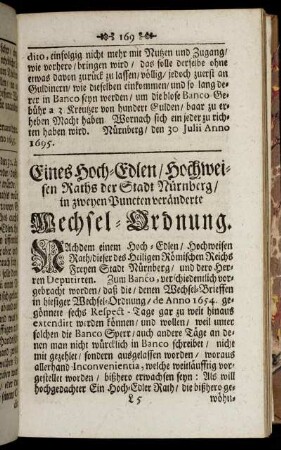 169
dito, einfolglig nicht mehr mit Nutzen und Zugang/
wie vorhero/ bringen wird / das solle derselbe ohne
etwas davon zurück zu lassen/ völlig/ jedoch zuerst an
Guldinern/ wie dieselben einkommen/ und so lang de-
rer in Banco seyn werden/ um die blose Banco Ge-
bühr a 3. Kreutzer von hundert Gulden/ baar zu er-
heben Macht haben Wornach sich ein jeder zu rich-
ten haben wird. Nürnberg/ den 30 Julii Anno
1695.
Eines Hoch-Edlen/ Hochwei-
sen Raths der Stadt Nürnberg/
in zweyen Puncten veränderte
Wechsel-Ordnung.
Nachdem einem Hoch-Edlen/ Hochweisen
Rath/ dieser des Heiligen Römischen Reichs
Freyen Stadt Nürnberg/ und dero Her-
ren Deputirten. Zum Banco, verschiedentlich vor-
gebracht worden/ daß die/ denen Wechsel-Brieffen
in hiesiger Wechsel-Ordnung/ de Anno 1654. ge-
gönnete sechs Respect-Tage gar zu weit hinaus
extendirt werden können/ und wollen/ weil unter
solchen die Banco Sperr/ auch andere Tage an de-
nen man nicht würcklich in Banco schreibet / nicht
mit gezehlet / sondern ausgelassen worden / woraus
allerhand Inconvenientia, welche weitläufftig vor-
gestellet worden / bißhero erwachsen seyn: Als will
hochgedachter Ein Hoch-Edler Rath/ die bißhero ge-
L5 wöhn-